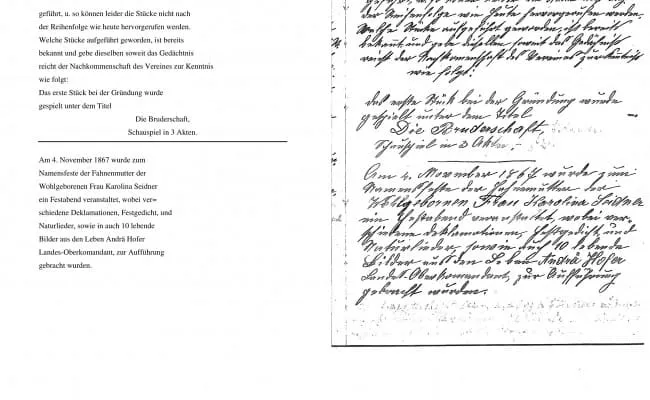 geführt, u. so können leider die Stücke nicht nach
der Reihenfolge wie heute hervorgerufen werden.
Welche Stücke aufgeführt geworden, ist bereits
bekannt und gebe dieselben soweit das Gedächtnis
reicht der Nachkommenschaft des Vereines zur Kenntnis
wie folgt:
Das erste Stück bei der Gründung wurde
gespielt unter dem Titel
Die Bruderschaft,
Schauspiel in 3 Akten.
Am 4. November 1867 wurde zum
Namensfeste der Fahnenmutter der
Wohlgeborenen Frau Karolina Seidner
ein Festabend veranstaltet, wobei ver=
schiedene Deklamationen, Festgedicht, und
Naturlieder, sowie in auch 10 lebende
Bilder aus den Leben Andrä Hofer
Landes-Oberkomandant, zur Aufführung
gebracht wurden.
der Reihenfolge wie heute hervorgerufen werden.
Welche Stücke aufgeführt geworden, ist bereits
bekannt und gebe dieselben soweit das Gedächtnis
reicht der Nachkommenschaft des Vereines zur Kenntnis
wie folgt:
das erste Stück bei der Gründung wurde
gespielt unter dem Titel
Die Bruderschaft,
Schauspiel in 3 Akten.
Am 4. November 1867 wurde zum
Namensfeste der Fahnenmutter der
Wohlgebornen Frau Karolina Seidner
ein Festabend veranstaltet, wobei ver=
schiedene Deklamationen, Festgedicht und
Naturlieder, sowie auch 10 lebende
Bilder aus den Leben Andrä Hofer
Landes Oberkomandant, zur Aufführung
gebracht wurden.